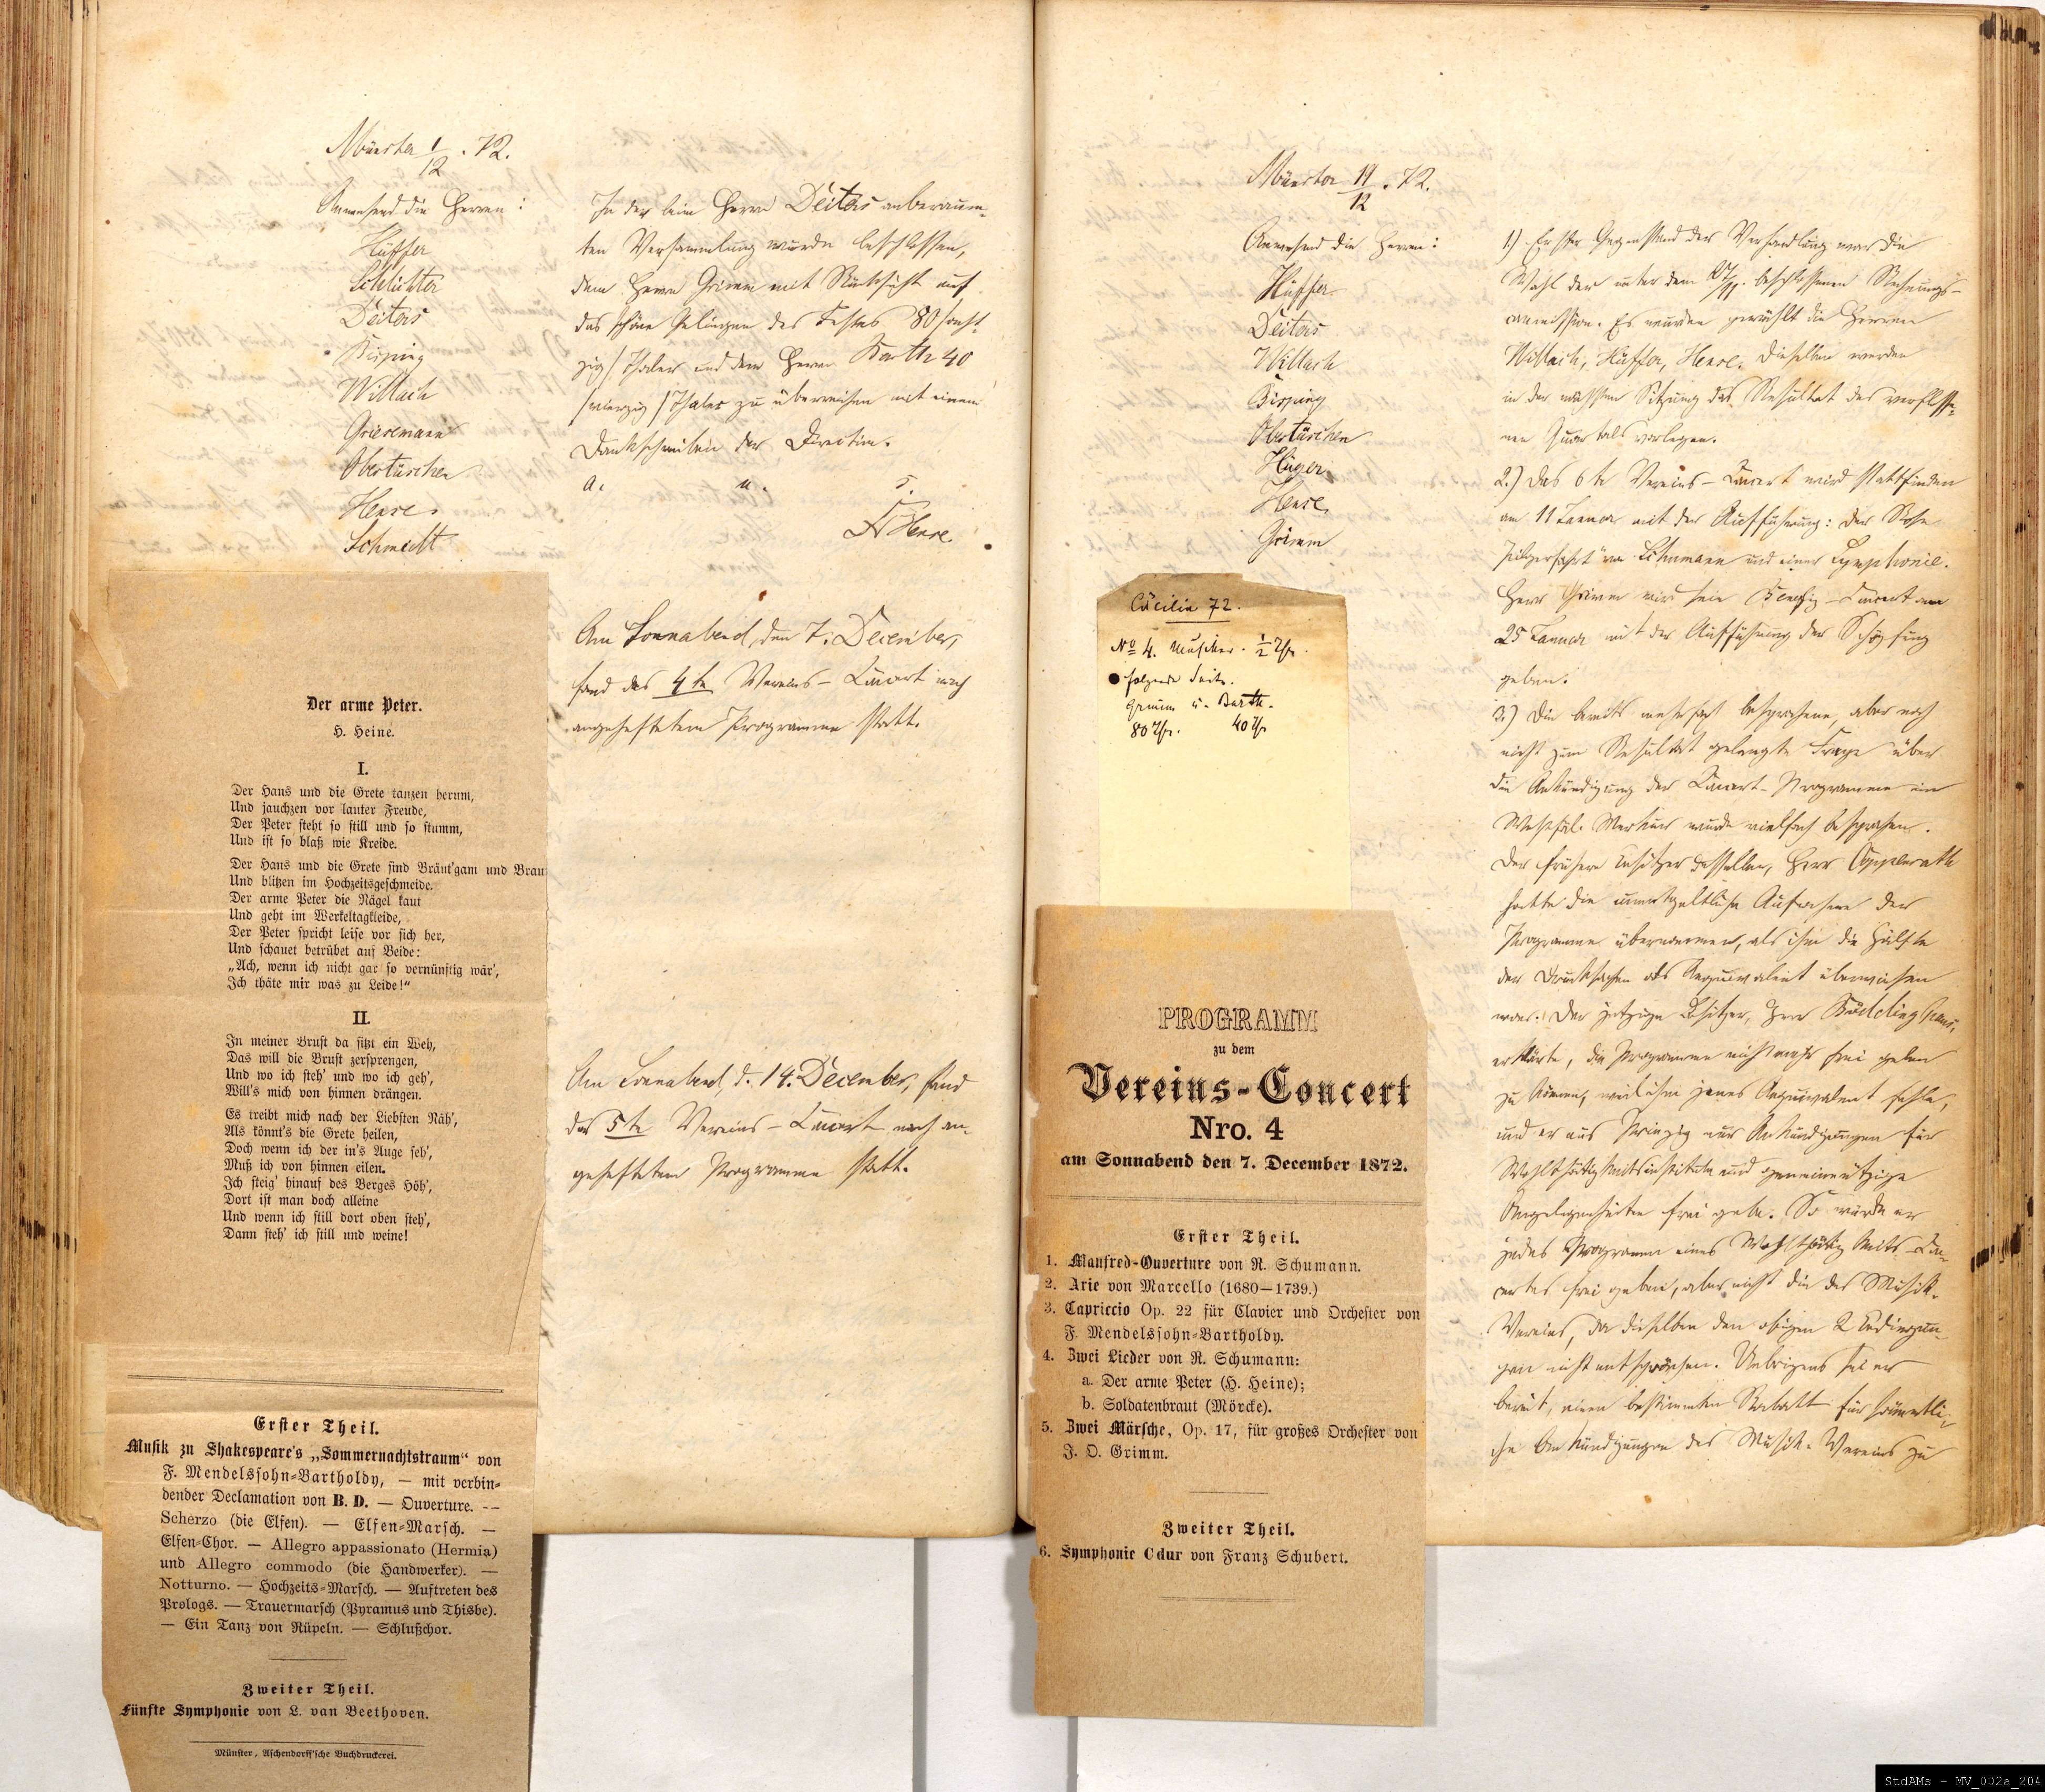 Münster 1/12. 72.
Anwesend die Herren:
Hüffer
Schlichter
Deiters
Bisping
Willach
Griesemann
Obertüschen
Hense
Schmedt
In der beim Herrn Deiters anberaum-
ten Versammlung wurde beschlossen,
dem Herrn Grimm mit Rücksicht auf
das schöne Gelingen des Festes 80 /acht-
zig/ Thaler und dem Herrn Barth 40
/vierzig/ Thaler zu überreichen mit einem
Dankschreiben der Direction.
a. u. s.
Hense.
Der arme Peter.
H. Heine.
I.
Der Hans und die Grete tanzen herum,
Und jauchzen vor lauter Freude,
Der Peter steht so still und so stumm,
Und ist so blaß wie Kreide.
Der Hans und die Grete sind Bräut'gam und Brau
Und blitzen im Hochzeitsgeschmeide.
Der arme Peter die Nägel kaut
Und geht im Werkeltagkleide,
Der Peter spricht leise vor sich her,
Und schauet betrübet auf Beide:
„Ach, wenn ich nicht gar so vernünftig wär',
Ich thäte mir was zu Leide!"
II.
In meiner Brust da sitzt ein Weh,
Das will die Brust zersprengen,
Und wo ich steh' und wo ich geh',
Will's mich von hinnen drängen.
Es treibt mich nach der Liebsten Näh',
Als könnt's die Grete heilen,
Doch wenn ich der in's Auge seh',
Muß ich von hinnen eilen.
Ich steig' hinauf des Berges Höh',
Dort ist man doch alleine
Und wenn ich still dort oben steh',
Dann steh' ich still und weine!
Am Sonnabend, den 7. December,
fand das 4te Vereins-Concert nach
angeheftetem Programme statt.
Am Sonnabend, d. 14. December, fand
das 5te Vereins-Concert nach an-
geheftetem Programme statt.
Erster Theil.
Musik zu Shakespeare's „Sommernachtstraum" von
F. Mendelssohn-Bartholdy, — mit verbin-
dender Declamation von B. D. — Ouverture. --
Scherzo (die Elfen). — Elfen-Marsch. —
Elfen-Chor. — Allegro appassionato (Hermia)
und Allegro commodo (die Handwerker). —
Notturno. — Hochzeits-Marsch. — Auftreten des
Prologs. — Trauermarsch (Pyramus und Thisbe).
— Ein Tanz von Rüpeln. — Schlußchor.
Zweiter Theil.
Fünfte Symphonie von L. van Beethoven.
Münster, Aschendorff'sche Buchdruckerei.
Münster 19/12. 72.
Anwesend die Herren:
Hüffer
Deiters
Willach
Bisping
Obertüschen
Hüger
Hense
Grimm
Cäcilia 72.
No 4. Musiker. ½ Thr.
folgende Seite.
Grimm u. Barth.
80 Thr. 40 Thr
PROGRAMM
zu dem
Vereins-Concert
Nro. 4
am Sonnabend den 7. December 1872.
Erster Theil.
1. Manfred-Ouverture von R. Schumann.
2. Arie von Marcello (1680—1739.)
3. Capriccio Op. 22 für Clavier und Orchester von
F. Mendelssohn-Bartholdy.
4. Zwei Lieder von R. Schumann:
a. Der arme Peter (H. Heine);
b. Soldatenbraut (Mörcke).
5. Zwei Märsche, Op. 17, für großes Orchester von
J. O. Grimm.
Zweiter Theil.
6. Symphonie C dur von Franz Schubert.
1.) Erster Gegenstand der Verhandlung war die
Wahl der unter dem beschlossenen Rechnungs-
commission. Es wurden gewählt die Herren
Willach, Hüffer, Hense. Dieselben werden
in der nächsten Sitzung das Resultat des verflosse-
nen Quartals vorlegen.
2.) Das 6te Vereins-Concert wird stattfinden
am 11 Januar mit der Aufführung: der Rose
Pilgerfahrt" von Schumann und einer Symphonie.
Herr Grimm wird sein Benefiz-Concert am
25 Januar mit der Aufführung der Schöpfung
geben.
3.) Die bereits mehrfach besprochene, aber noch
nicht zum Resultat gelangte Frage über
die Ankündigung der Concert-Programme im
Westfäl. Merkur wurde vielfach besprochen.
Der frühere Besitzer desselben, Herr Coppenrath
hatte die unentgeltliche Aufnahme der
Programme übernommen, als ihm die Hälfte
der Drucksachen als Aequivalent überwiesen
war. Der jetzige Besitzer, Herr Böddinghaus,
erklärte, die Programme nicht mehr frei geben
zu können, weil ihm jenes Aequivalent fehle,
und er aus Prinzip nur Ankündigungen für
Wohlthätigkeitsinstitute und gemeinnützige
Angelegenheiten frei gebe. So würde er
jedes Programm eines Wohlthätigkeits-Con-
certes frei geben, aber nicht die des Musik-
Vereins, da dieselben den obigen 2 Bedingun-
gen nicht entsprächen. Uebrigens sei er
bereit, einen bestimmten Rabatt für sämmtli-
che Ankündigungen des Musik-Vereins zu
StdAMs - MV_002a_204